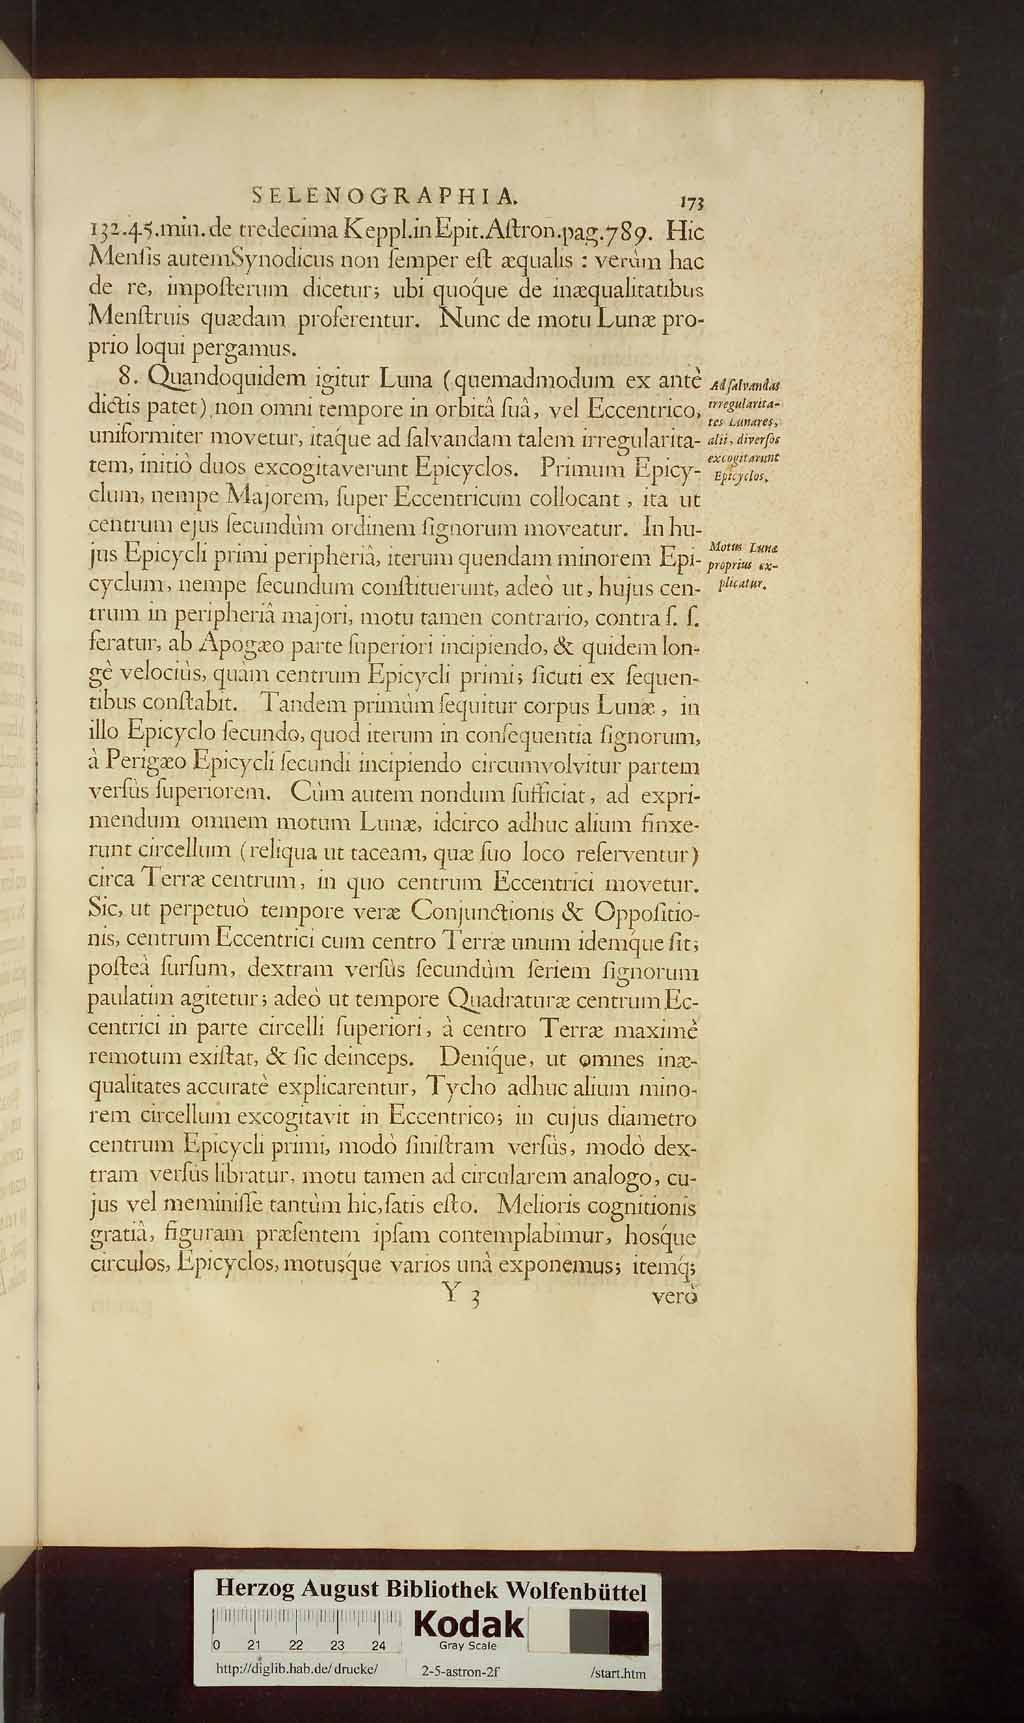 SELENOGRAPHIA.
173
132.45.min.de tredecima Keppl.in Epit.Aſtron.pag.789. Hic
Menſis autem Synodicus non ſemper eſt æqualis : verùm hac
de re, impoſterum dicetur; ubi quoq́ue de inæqualitatibus
Menſtruis quædam proferentur. Nunc de motu Lunæ pro-
prio loqui pergamus.
8. Quandoquidem igitur Luna (quemadmodum ex antè
dictis patet) non omni tempore in orbitâ ſuâ, vel Eccentrico,
uniformiter movetur, itaq́ue ad ſalvandam talem irregularita-
tem, initiò duos excogitaverunt Epicyclos. Primum Epicy-
clum, nempe Majorem, ſuper Eccentricum collocant, ita ut
centrum ejus ſecundùm ordinem ſignorum moveatur. In hu-
jus Epicycli primi peripheriâ, iterum quendam minorem Epi-
cyclum, nempe ſecundum conſtituerunt, adeò ut, hujus cen-
trum in peripheriâ majori, motu tamen contrario, contra ſ. ſ.
feratur, ab Apogæo parte ſuperiori incipiendo, & quidem lon-
gè velociùs, quàm centrum Epicycli primi; ſicuti ex ſequen-
tibus conſtabit. Tandem primùm ſequitur corpus Lunæ, in
illo Epicyclo ſecundo, quod iterum in conſequentia ſignorum,
à Perigæo Epicycli ſecundi incipiendo circumvolvitur partem
verſùs ſuperiorem. Cùm autem nondum ſufficiat, ad expri-
mendum omnem motum Lunæ, idcirco adhuc alium finxe-
runt circellum (reliqua ut taceam, quæ ſuo loco reſerventur)
circa Terræ centrum, in quo centrum Eccentrici movetur.
Sic, ut perpetuò tempore veræ Conjunctionis & Oppoſitio-
nis, centrum Eccentrici cum centro Terræ unum idemq́ue ſit;
poſteà ſurſum, dextram verſùs ſecundùm ſeriem ſignorum
paulatim agitetur; adeò ut tempore Quadraturæ centrum Ec-
centrici in parte circelli ſuperiori, à centro Terræ maximè
remotum exiſtat, & ſic deinceps. Deniq́ue, ut omnes inæ-
qualitates accuratè explicarentur, Tycho adhuc alium mino-
rem circellum excogitavit in Eccentrico; in cujus diametro
centrum Epicycli primi, modò ſiniſtram verſùs, modò dex-
tram verſùs libratur, motu tamen ad circularem analogo, cu-
jus vel meminiſſe tantùm hic, ſatis eſto. Melioris cognitionis
gratiâ, figuram præſentem ipſam contemplabimur, hosq́ue
circulos, Epicyclos, motusq́ue varios unà exponemus; itemq́;
Y 3
verò
Ad ſalvandas
irregularita-
tes Lunares,
alii, diverſos
excogitarunt
Epicyclos.
Motus Lunæ
proprius ex-
plicatur.
Herzog August Bibliothek Wolfenbüttel
0 21 22 23 24
Kodak
Gray Scale
http://diglib.hab.de/drucke/
2-5-astron-2f
/start.htm